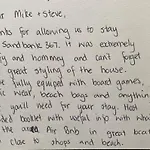 ar Mike + Steve,
nks for allowing us to stay
Sandbank 367. It was extremely
and hommey and cant forget
great styling of the house.
fully equiped with board games,
wear, beach bags and anything
need for your stay. Heat
booklet with useful info with what
the area Air BnB in great locat
close to shops and beach.